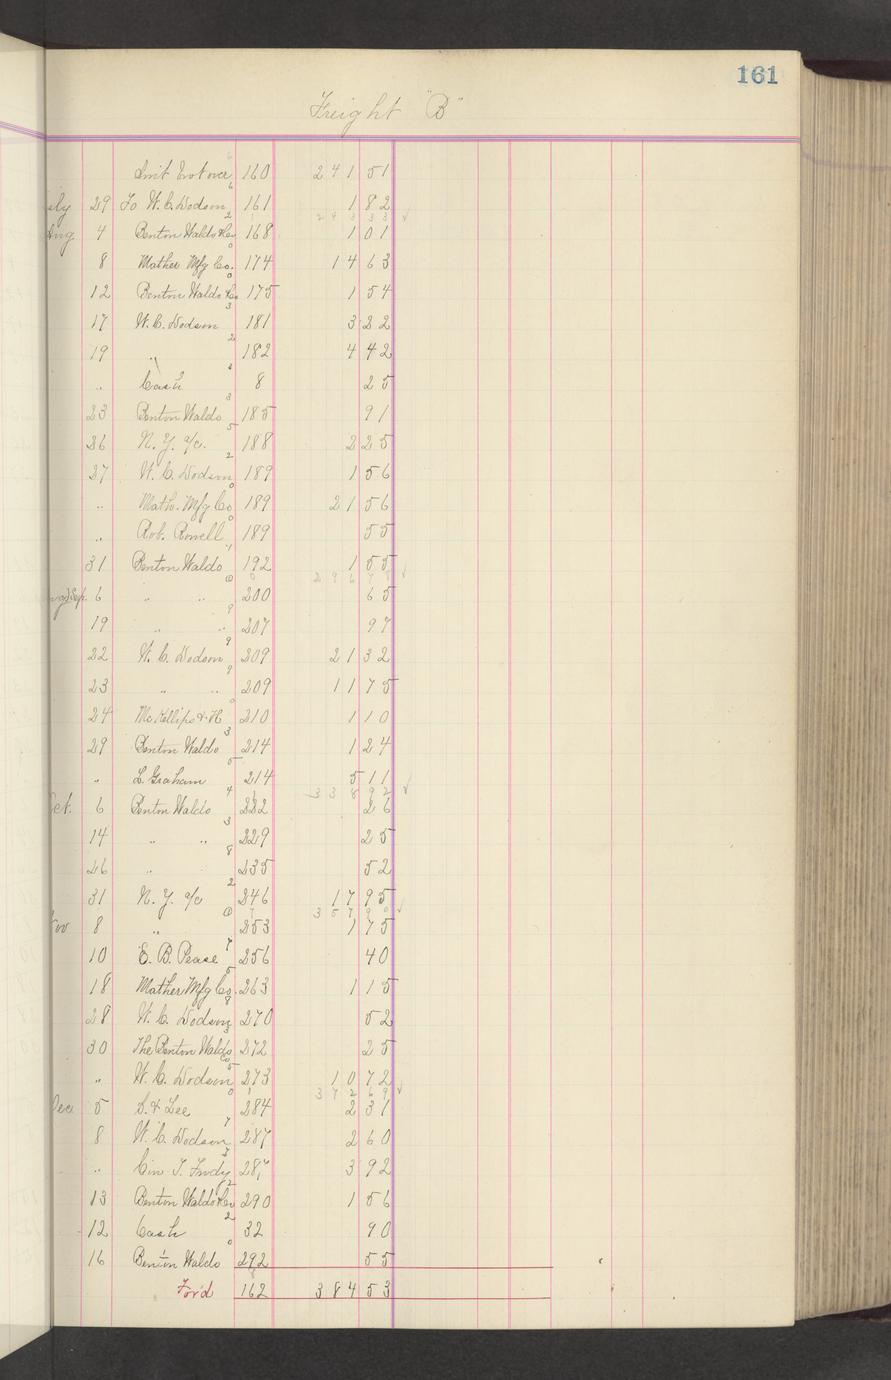 161
Freight "B"
Amt Brot over 160 241 51
July 29 To W. C. Dodson 161 1 82
243 33 ✓
Aug 4 Benton Waldo & Co 168 1 01
8 Mather Mfg Co. 174 14 63
12 Benton Waldo & Co 175 1 54
17 W. C. Dodson 181 3 22
19 " 182 4 42
" Cash 8 25
23 Benton Waldo 185 91
26 N. Y. a/c. 188 2 25
27 W. C. Dodson 189 1 56
" Math. Mfg Co 189 21 56
" Rob. Rowell 189 55
31 Benton Waldo 192 1 55
296 78 ✓
Sep. 6 " " 200 65
19 " " 207 97
22 W. C. Dodson 209 21 32
23 " " 209 11 75
24 McKellips & H 210 1 10
29 Benton Waldo 214 1 24
" L. Graham 214 5 11
338 92 ✓
Oct. 6 Benton Waldo 222 26
14 " " 229 25
26 " 235 52
31 N. Y. a/c 246 17 95
357 90 ✓
Nov 8 " 253 1 75
10 E. B. Pease 256 40
18 Mather Mfg Co. 263 1 15
28 W. C. Dodson 270 52
30 The Benton Waldo 272 25
" W. C. Dodson 273 10 72
372 69 ✓
Dec 5 S. & Lee 284 2 31
8 W. C. Dodson 287 2 60
" Cin T. 287 3 92
13 Benton Waldo & Co 290 1 56
12 Cash 32 90
16 Benton Waldo 292 55
For'd 162 384 53